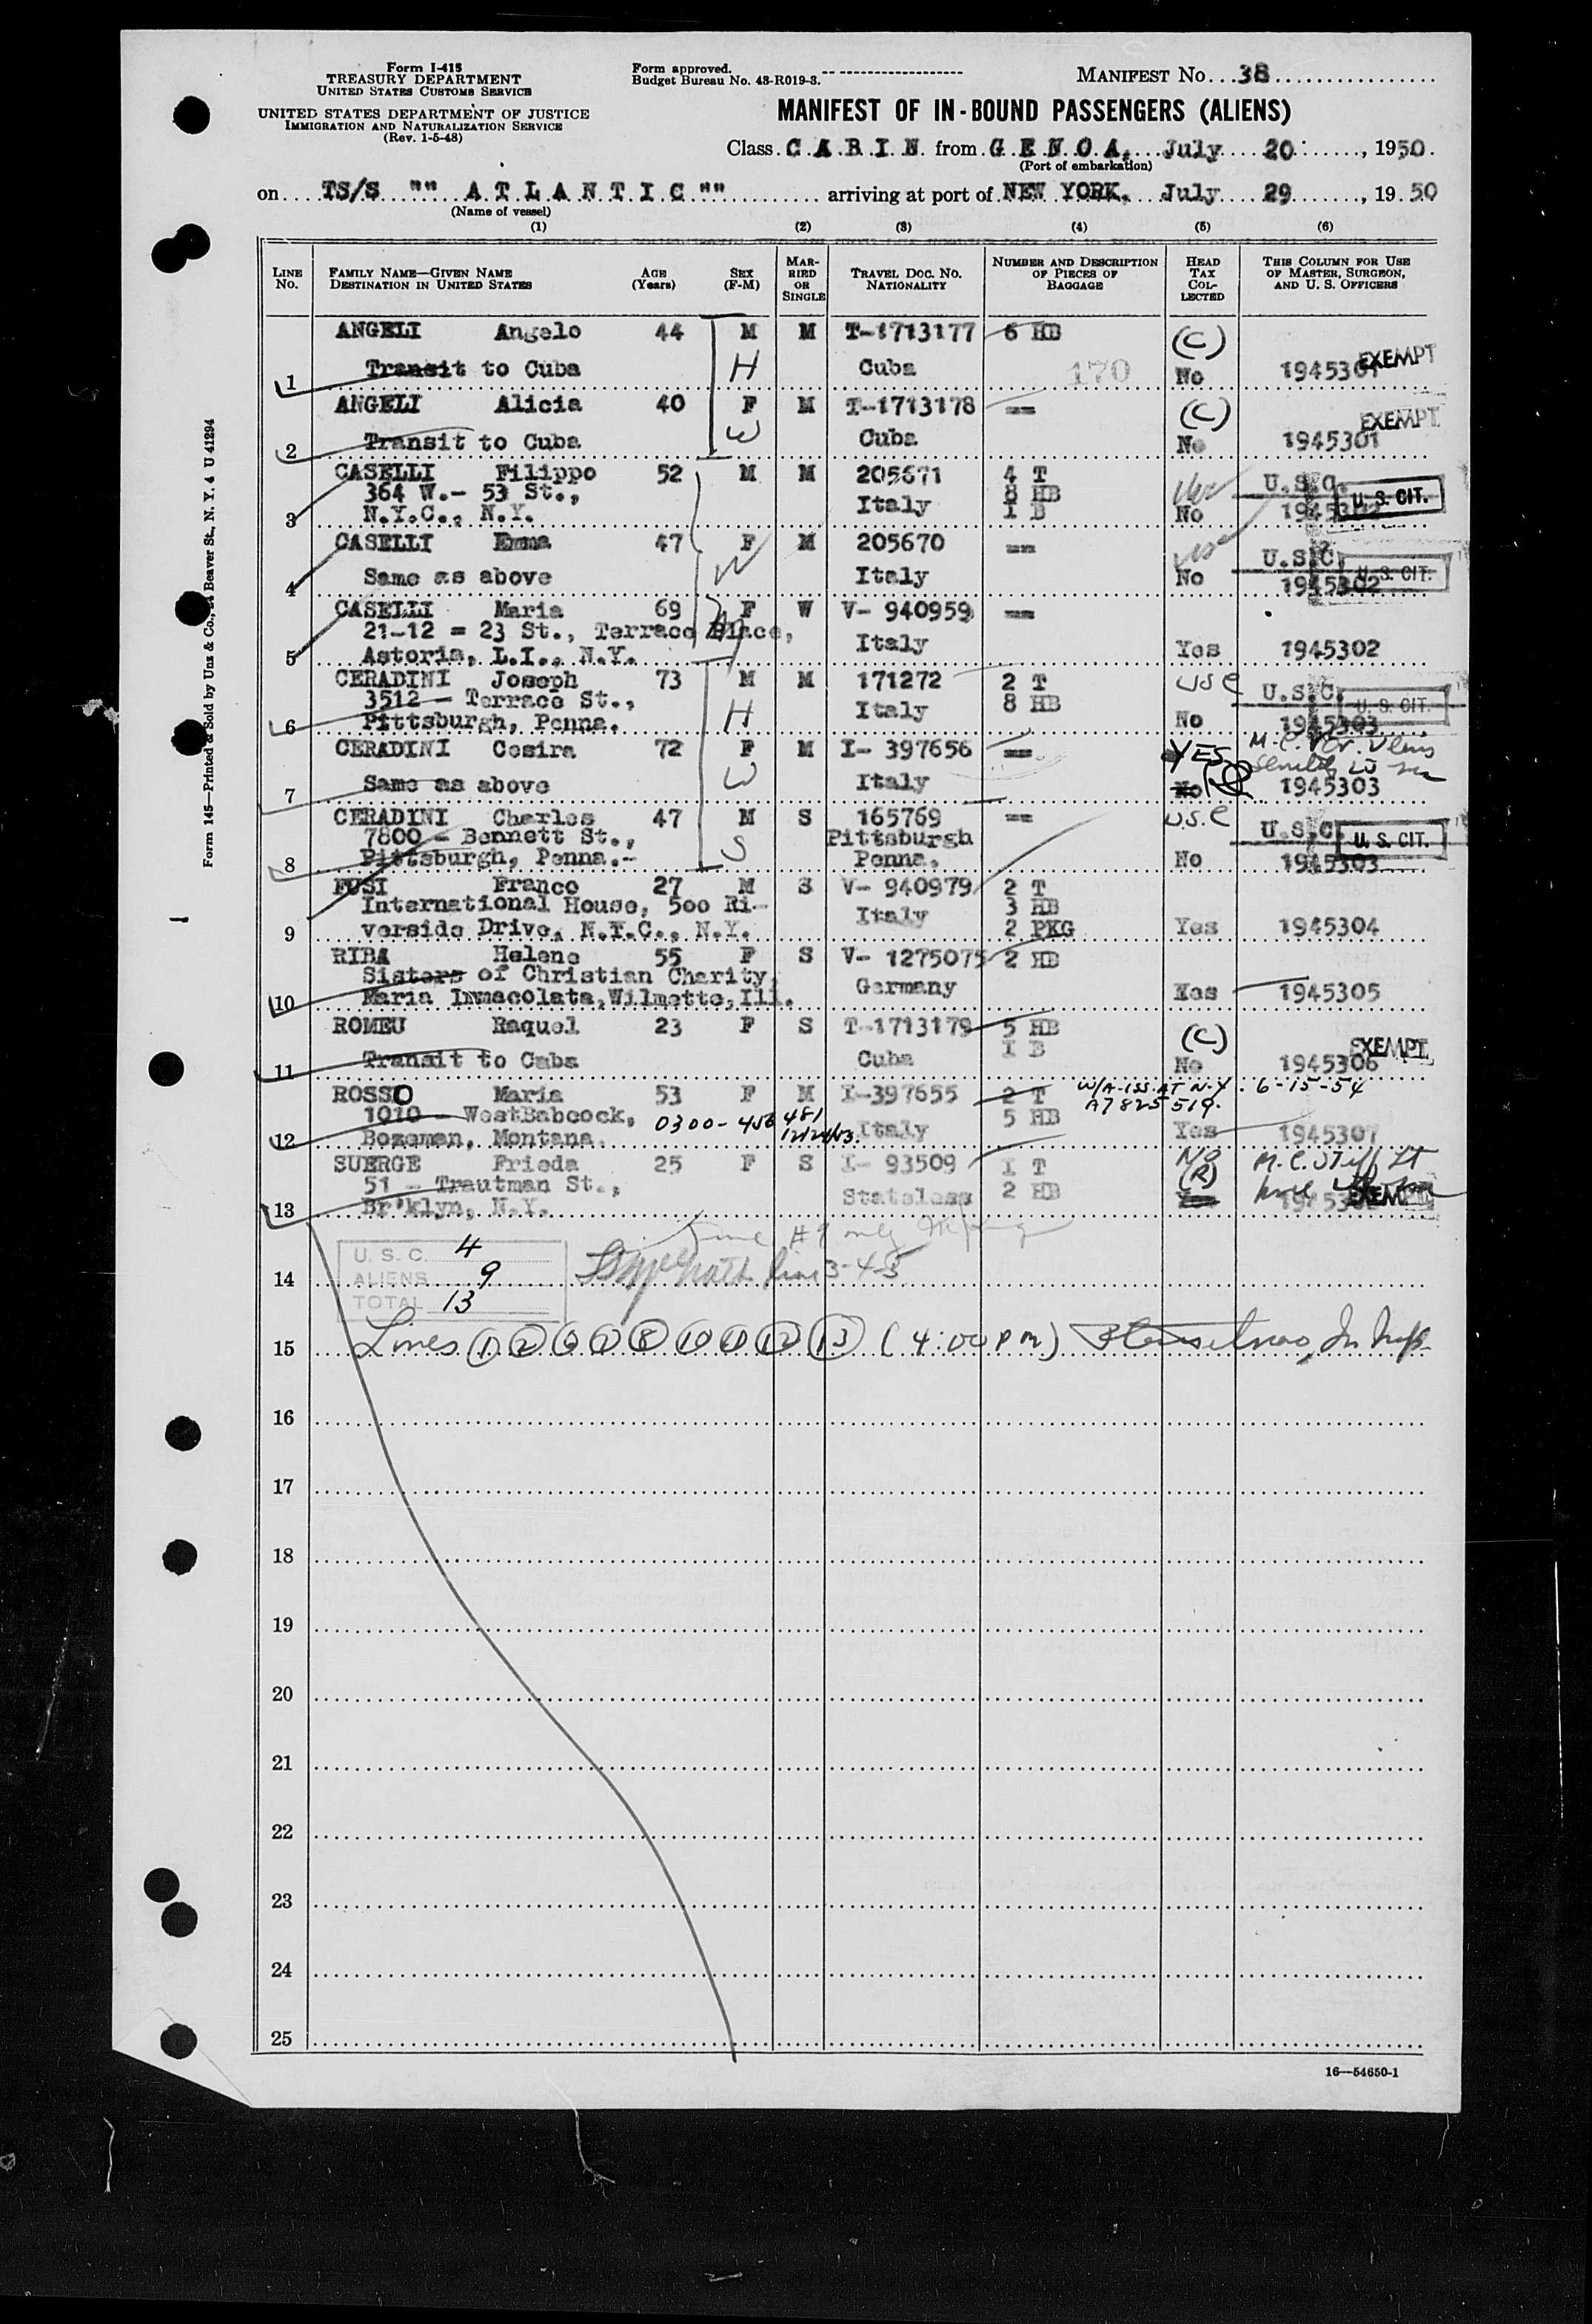 Form I-415
TREASURY DEPARTMENT
UNITED STATES CUSTOMS SERVICE
UNITED STATES DEPARTMENT OF JUSTICE
IMMIGRATION AND NATURALIZATION SERVICE
(Rev. 1-5-48)
Form approved.
Budget Bureau No. 43-R019-3.
MANIFEST NO. 38
MANIFEST OF IN-BOUND PASSENGERS (ALIENS)
Class CABIN from GENOA, July 20, 1950.
(Port of embarkation)
on TS/S "" ATLANTIC "" arriving at port of NEW YORK, July 29, 1950
(Name of vessel)
(1) (2) (3) (4) (5) (6)
LINE NO. FAMILY NAME—GIVEN NAME DESTINATION IN UNITED STATES AGE (Years) SEX (F-M) MARRIED OR SINGLE TRAVEL DOC. NO. NATIONALITY NUMBER AND DESCRIPTION OF PIECES OF BAGGAGE HEAD TAX COLLECTED THIS COLUMN FOR USE OF MASTER, SURGEON, AND U. S. OFFICERS
ANGELI Angelo 44 M M T-1713177 6 HB (C)
1 Transit to Cuba H Cuba 170 No 1945301 EXEMPT
ANGELI Alicia 40 F M T-1713178 -- (C) EXEMPT
2 Transit to Cuba W Cuba No 1945301
CASELLI Filippo 52 M M 205671 4 T U.S.C.
364 W.- 53 St., Italy 8 HB U. S. CIT.
3 N.Y.C., N.Y. 1 B No 1945302
CASELLI Emma 47 F M 205670 -- U.S.C.
4 Same as above W Italy No 1945302 U. S. CIT.
CASELLI Maria 69 F W V- 940959 --
21-12 = 23 St., Terrace Place, Italy
5 Astoria, L.I., N.Y. Yes 1945302
CERADINI Joseph 73 M M 171272 2 T USC U.S.C.
3512 - Terrace St., H Italy 8 HB U. S. CIT.
6 Pittsburgh, Penna. No 1945303
CERADINI Cesira 72 F M I- 397656 -- YES
7 Same as above W Italy No (R) 1945303
CERADINI Charles 47 M S 165769 -- U.S.C U.S.C.
7800 - Bennett St., S Pittsburgh U. S. CIT.
8 Pittsburgh, Penna.- Penna. No 1945303
FUSI Franco 27 M S V- 940979 2 T
International House, 500 Ri- Italy 3 HB
9 verside Drive, N.Y.C., N.Y. 2 PKG Yes 1945304
RIBA Helene 55 F S V- 1275075 2 HB
Sisters of Christian Charity, Germany
10 Maria Immacolata, Wilmette, Ill. Yes 1945305
ROMEU Raquel 23 F S T-1713179 5 HB (C)
11 Transit to Cuba Cuba 1 B No 1945306 EXEMPT
ROSSO Maria 53 F M I-397655 2 T W/A-ISS AT N-Y. 6-15-54
1010 - West Babcock, 0300-456 481 5 HB A7 825 519.
12 Bozeman, Montana. Italy Yes 1945307
SUERGE Frieda 25 F S I- 93509 1 T NO
51 - Trautman St., Stateless 2 HB (R)
13 Br'klyn, N.Y. EXEMPT
U. S. C. 4
14 ALIENS 9 Line 3-4-5
TOTAL 13
15 Lines 1 2 6 7 8 10 11 12 13 (4:00 PM)
16
17
18
19
20
21
22
23
24
25
16—54650-1
Form 145—Printed & Sold by Unz & Co., Beaver St. N. Y. 4 U 41294